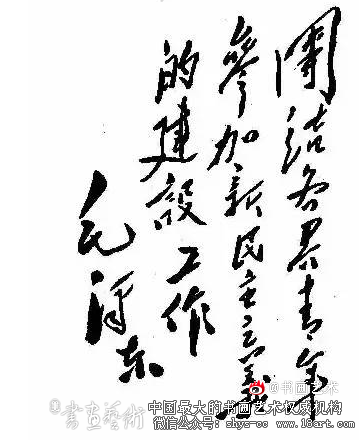 團结各界青年
參加新民主主義
的建設工作
毛澤东
@书画艺术
書画藝術
中国最大的书画艺术权威机构
shys-cc www.18art.com